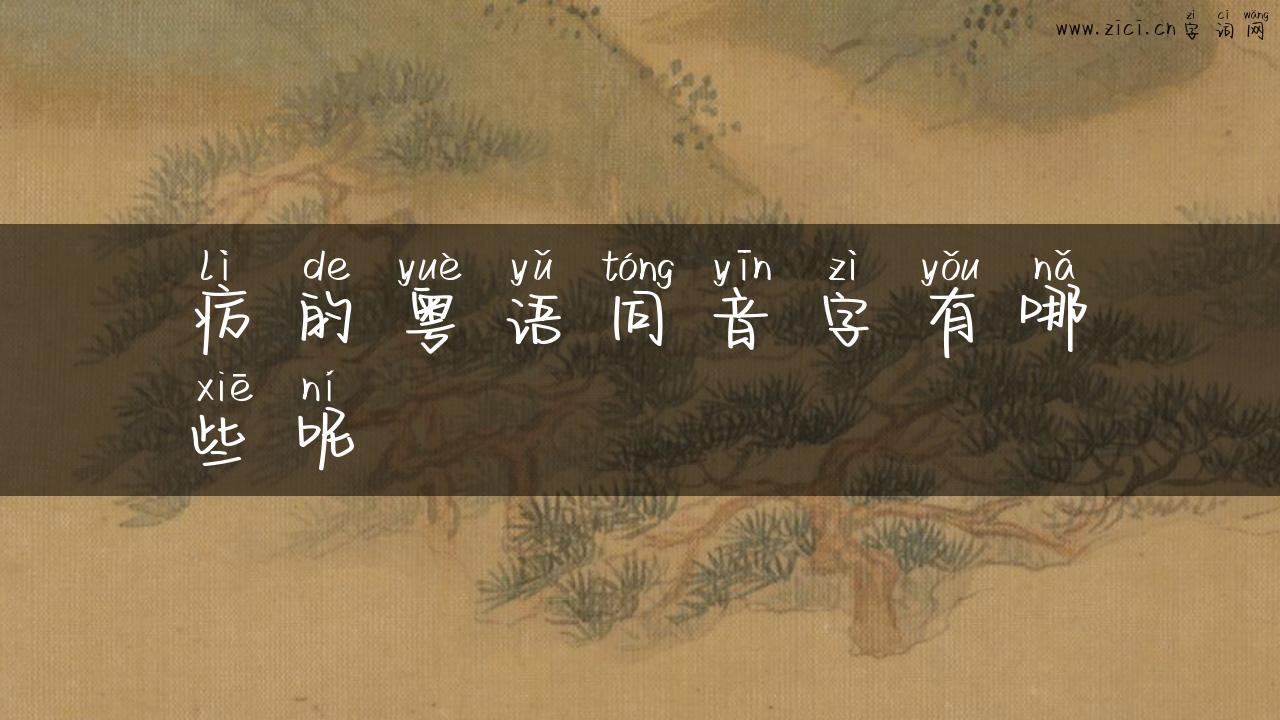 zì cí wǎng
www.zici.cn 字词网
lì de yuè yǔ tóng yīn zì yǒu nǎ
疠的粤语同音字有哪
xiē ní
些呢